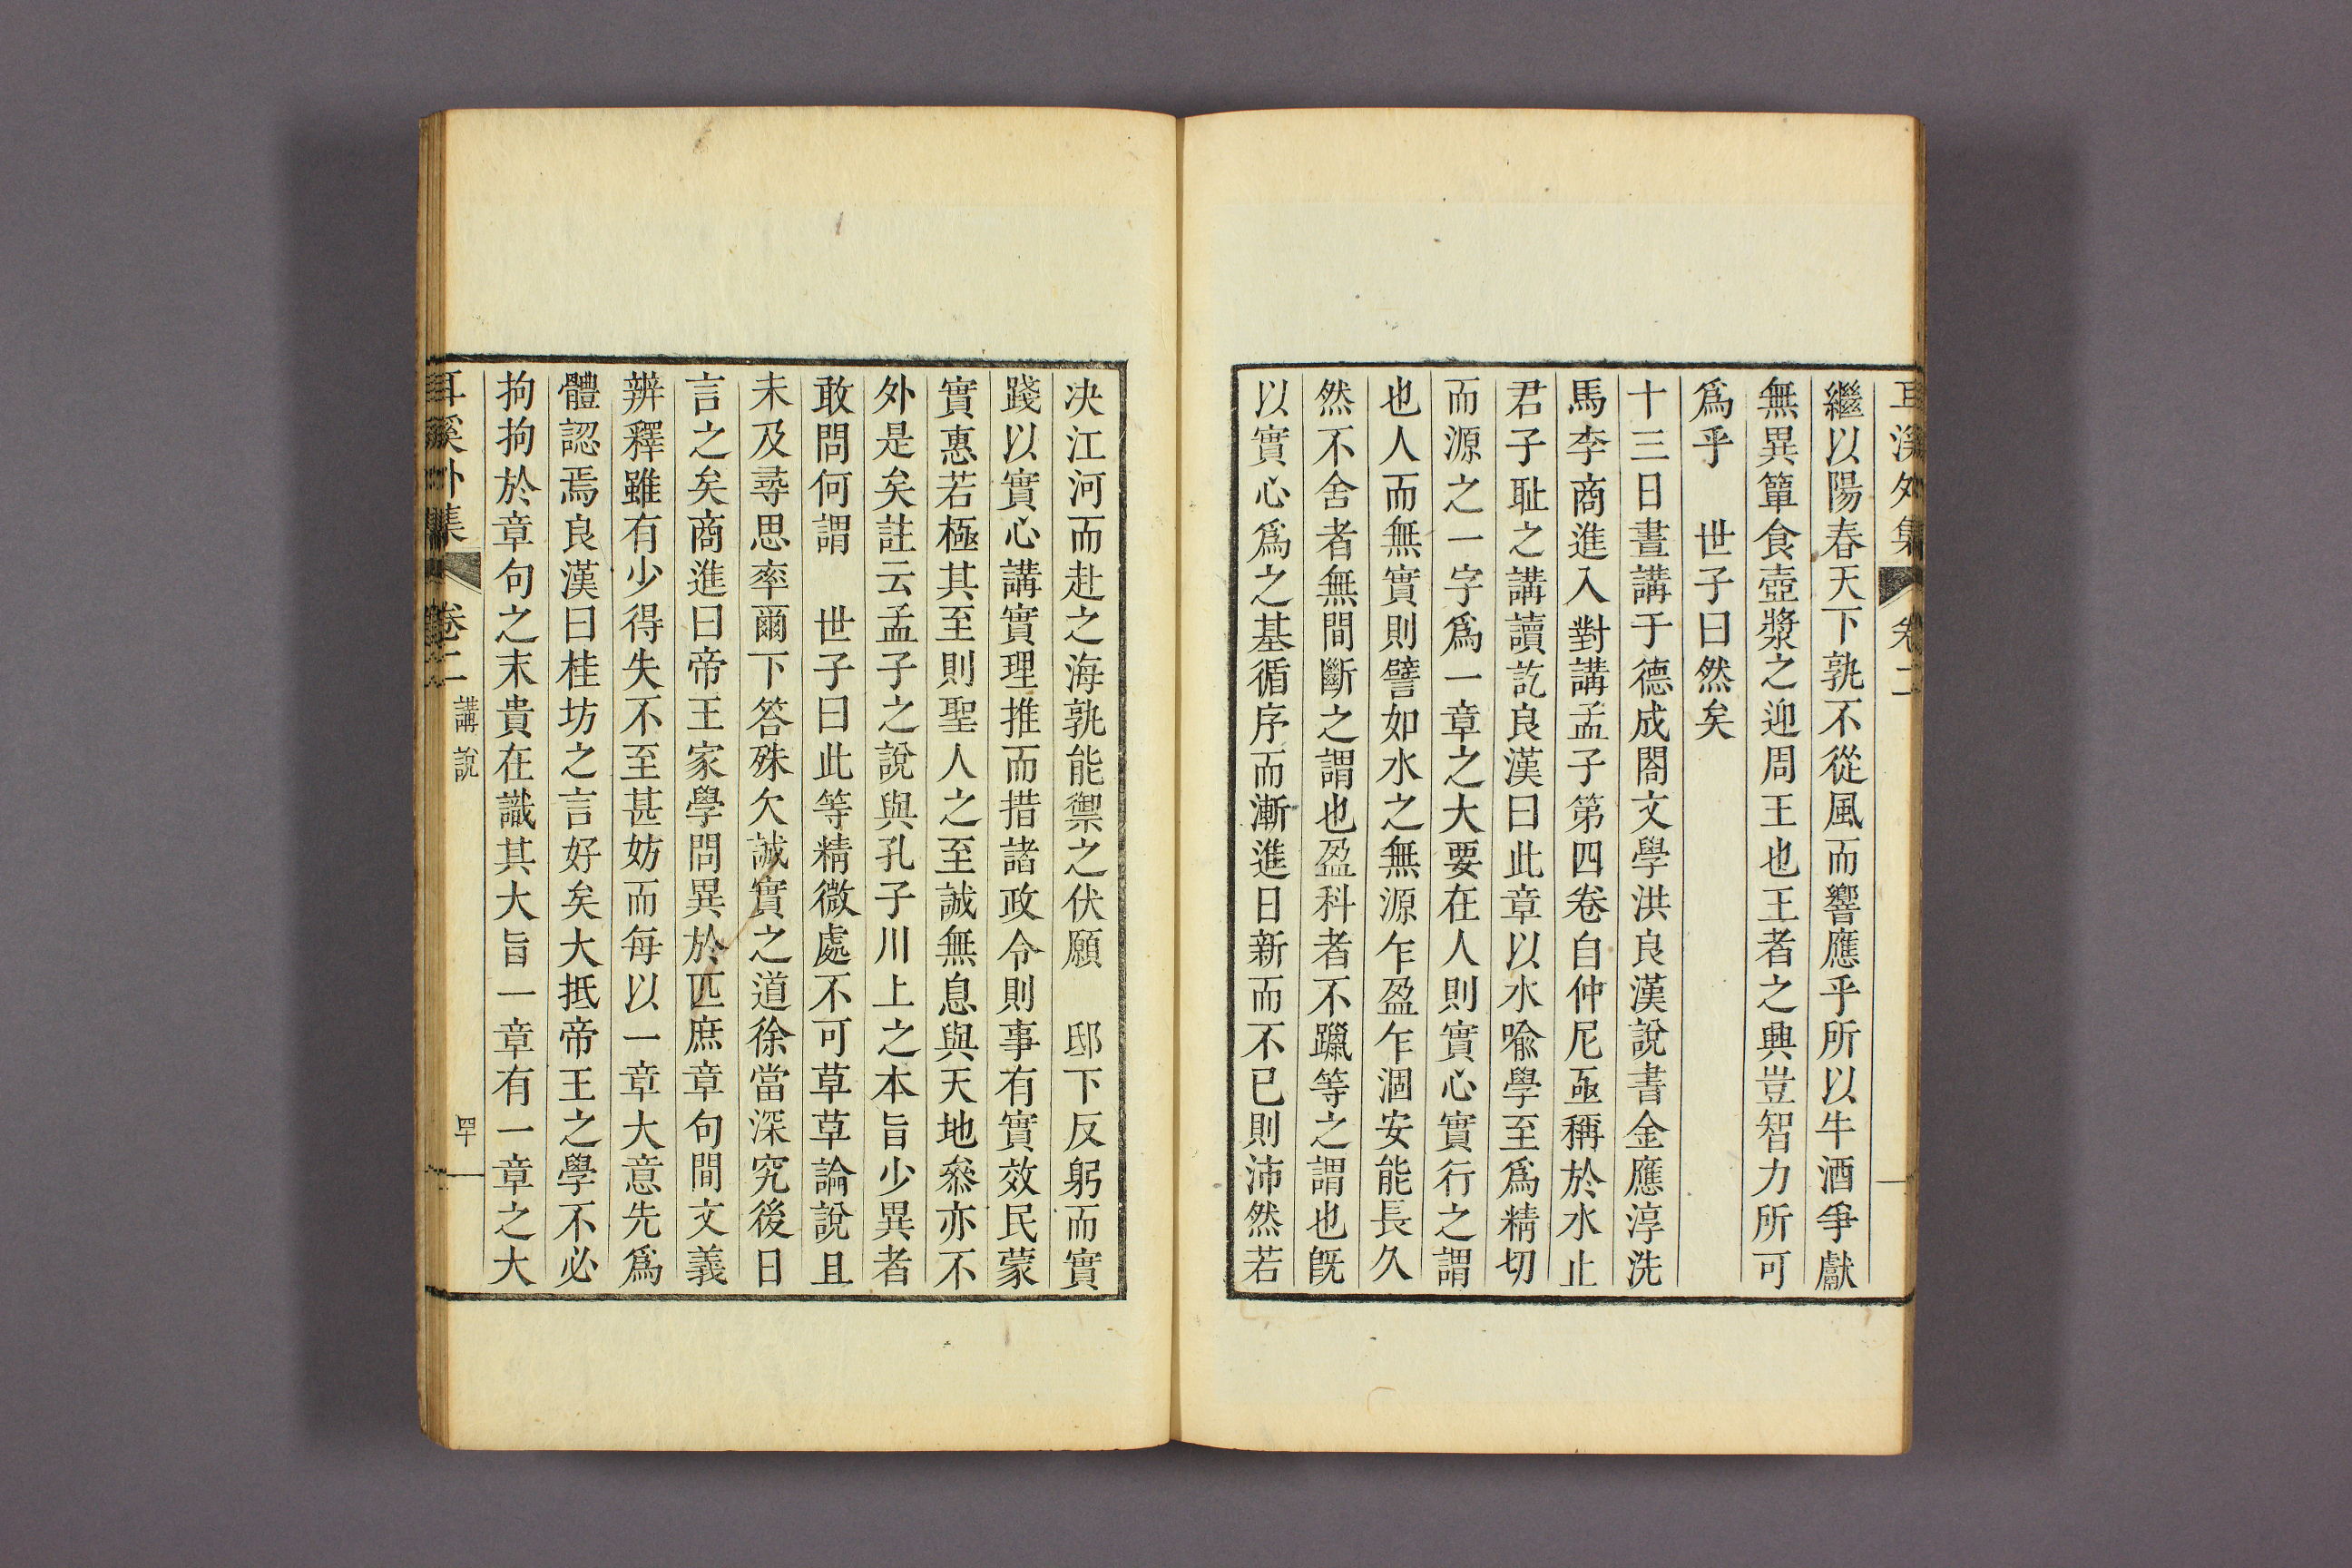 耳溪外集 卷二
繼以陽春天下孰不從風而響應乎所以牛酒爭獻
無異簞食壺漿之迎周王也王者之興豈智力所可
爲乎 世子曰然矣
十三日晝講于德成閤文學洪良漢說書金應淳洗
馬李商進入對講孟子第四卷自仲尼亟稱於水止
君子耻之講讀訖良漢曰此章以水喩學至爲精切
而源之一字爲一章之大要在人則實心實行之謂
也人而無實則譬如水之無源乍盈乍涸安能長久
然不舍者無間斷之謂也盈科者不躐等之謂也旣
以實心爲之基循序而漸進日新而不已則沛然若
决江河而赴之海孰能禦之伏願 邸下反躬而實
踐以實心講實理推而措諸政令則事有實效民蒙
實惠若極其至則聖人之至誠無息與天地叅亦不
外是矣註云孟子之說與孔子川上之本旨少異者
敢問何謂 世子曰此等精微處不可草草論說且
未及尋思率爾下答殊欠誠實之道徐當深究後日
言之矣商進曰帝王家學問異於匹庶章句間文義
辨釋雖有少得失不至甚妨而每以一章大意先爲
體認焉良漢曰桂坊之言好矣大抵帝王之學不必
拘拘於章句之末貴在識其大旨一章有一章之大
耳溪外集 卷二 講說 四十